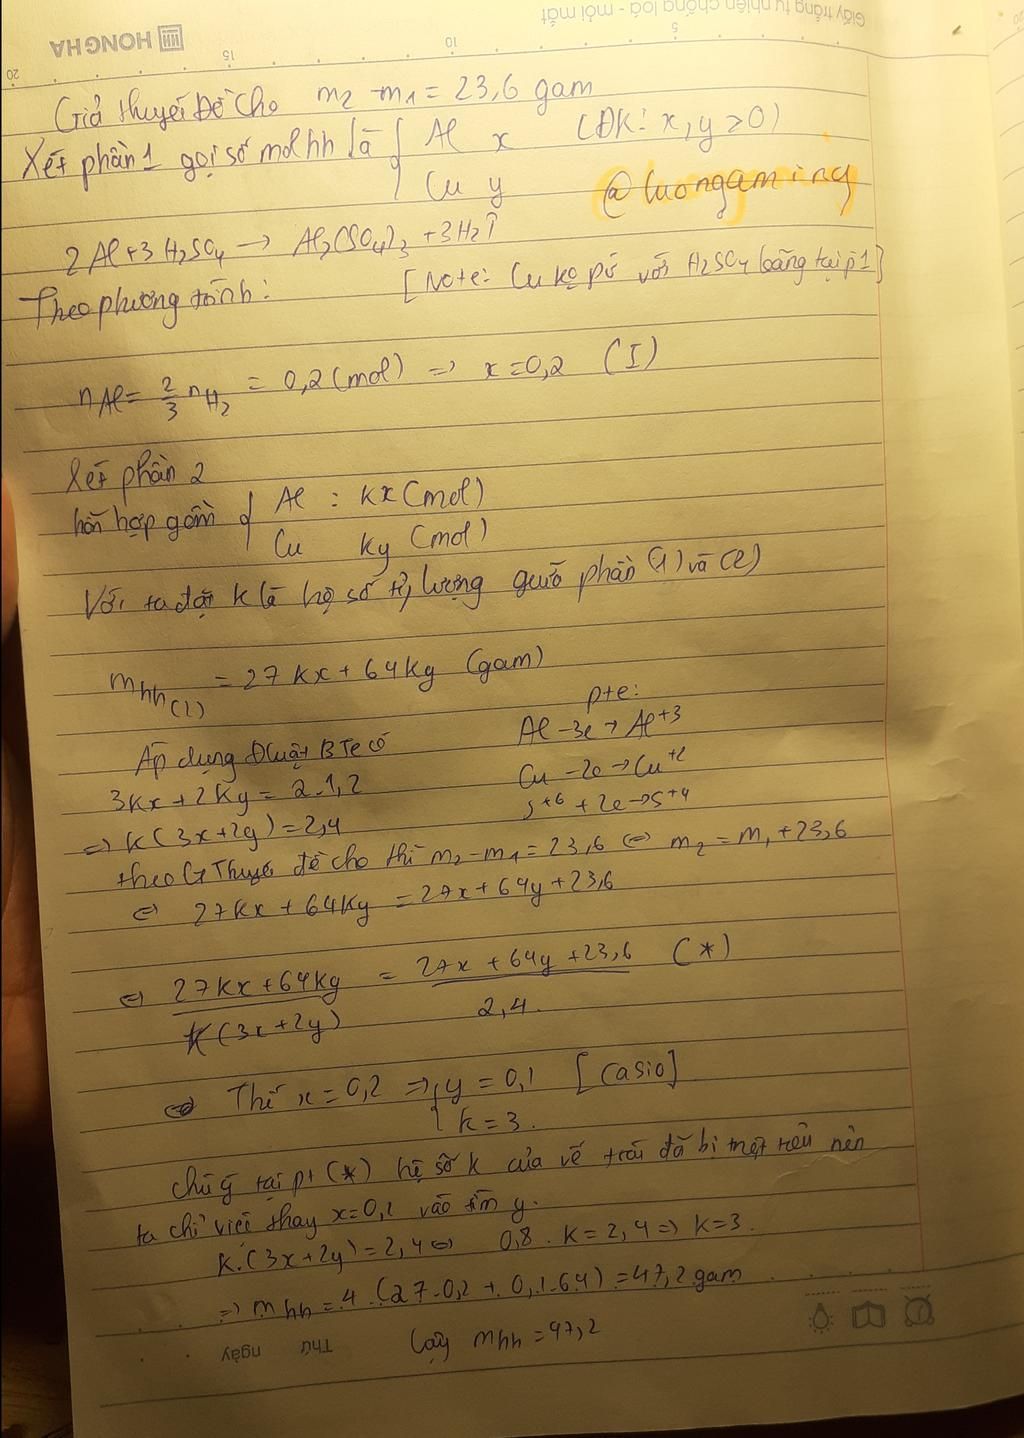 Giấy trắng tự nhiên chống loá - mỏi mắt
HONG HA
5
10
15
20
Giả thuyết Đề Cho m2 - m1 = 23,6 gam
Xét phần 1 gọi số mol hh là { Al x (ĐK: x, y > 0)
Cu y
@luongaming
2Al + 3H2SO4 → Al2(SO4)3 + 3H2↑
Theo phương trình: [Note: Cu ko pứ với H2SO4 loãng tại p1]
nAl = 2/3 nH2 = 0,2 (mol) => x = 0,2 (I)
Xét phần 2
hỗn hợp gồm { Al : kx (mol)
Cu ky (mol)
Với ta đặt k là hệ số tỉ lượng giữa phần (1) và (2)
mhh(2) = 27kx + 64ky (gam)
pte:
Al - 3e → Al+3
Áp dụng Đluật BTe có
Cu - 2e → Cu+2
3kx + 2ky = 2.1,2
S+6 + 2e → S+4
=> k(3x+2y) = 2,4
theo GThuyết đề cho thì m2 - m1 = 23,6 <=> m2 = m1 + 23,6
<=> 27kx + 64ky = 27x + 64y + 23,6
<=> 27kx + 64ky / k(3x+2y) = 27x + 64y + 23,6 / 2,4 (*)
<=> Thế x = 0,2 => { y = 0,1 [Casio]
k = 3.
Chú ý tại pt (*) hệ số k của vế trái đã bị triệt tiêu nên
ta chỉ việc thay x = 0,2 vào tìm y.
k.(3x+2y) = 2,4 <=> 0,8 . k = 2,4 => k = 3.
=> mhh = 4 . (27.0,2 + 0,1.64) = 47,2 gam
Vậy mhh = 47,2
Thứ ngày